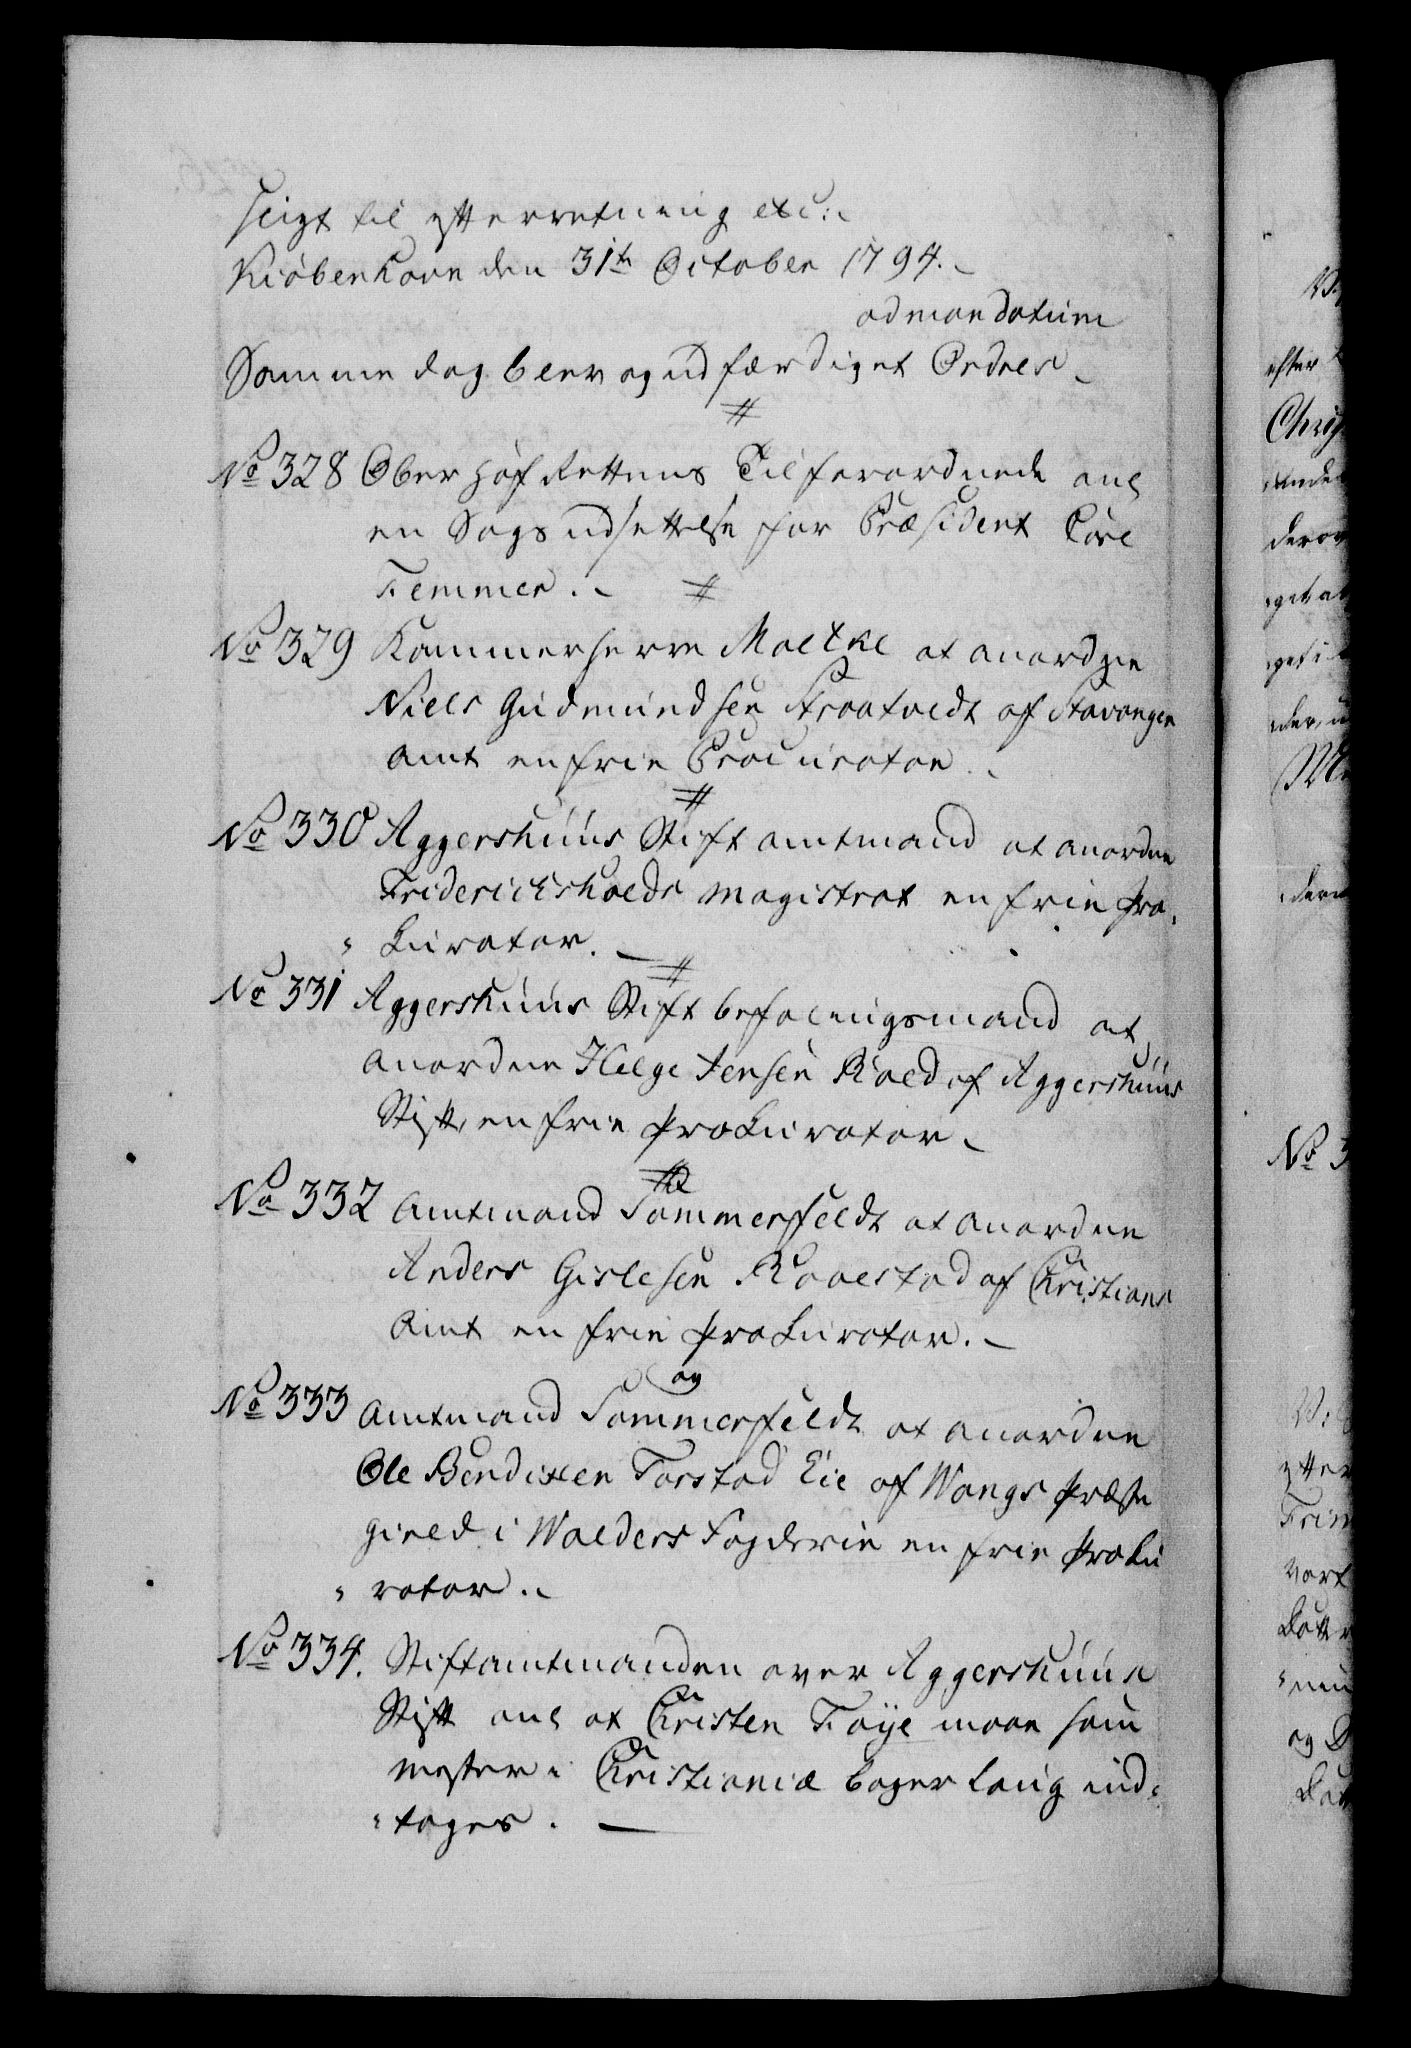 heigt til efterretning etc:.
Kiøbenhavn den 31te October 1794.
ad mandatum
Samme dag blev og udfærdiget Ordres
#
No 328 Ober Hof Rettens Tilforordnede anl
en Sags udsettelse for Præsident Carl
Femmer. #
No 329 Kammerherre Moltke at anordne
Niels Gudmundsen Straatvedt af Stavanger
Amt en frie Procurator.
#
No 330 Aggershuus Stiftamtmand at anordne
Friderichshalds Magistrat en frie Pro-
kurator.
#
No 331 Aggershuus Stiftbefalingsmand at
anordne Helge Jensen Rold af Aggershuus
Stift, en frie Prokurator
#
No 332 Amtmand Sommerfeldt at anordne
Anders Gislesen Raaestad af Christians
Amt en frie Prokurator.
og
No 333 Amtmand Sommerfeldt at anordne
Ole Bendixen Forstad Eie af Wangs Præste
gield i Walders Fogderie en frie Proku
rator.
No 334. Stiftamtmanden over Aggershuus
Stift anl at Christen Føye maae som
mester i Christianiæ bager laug ind-
tages.